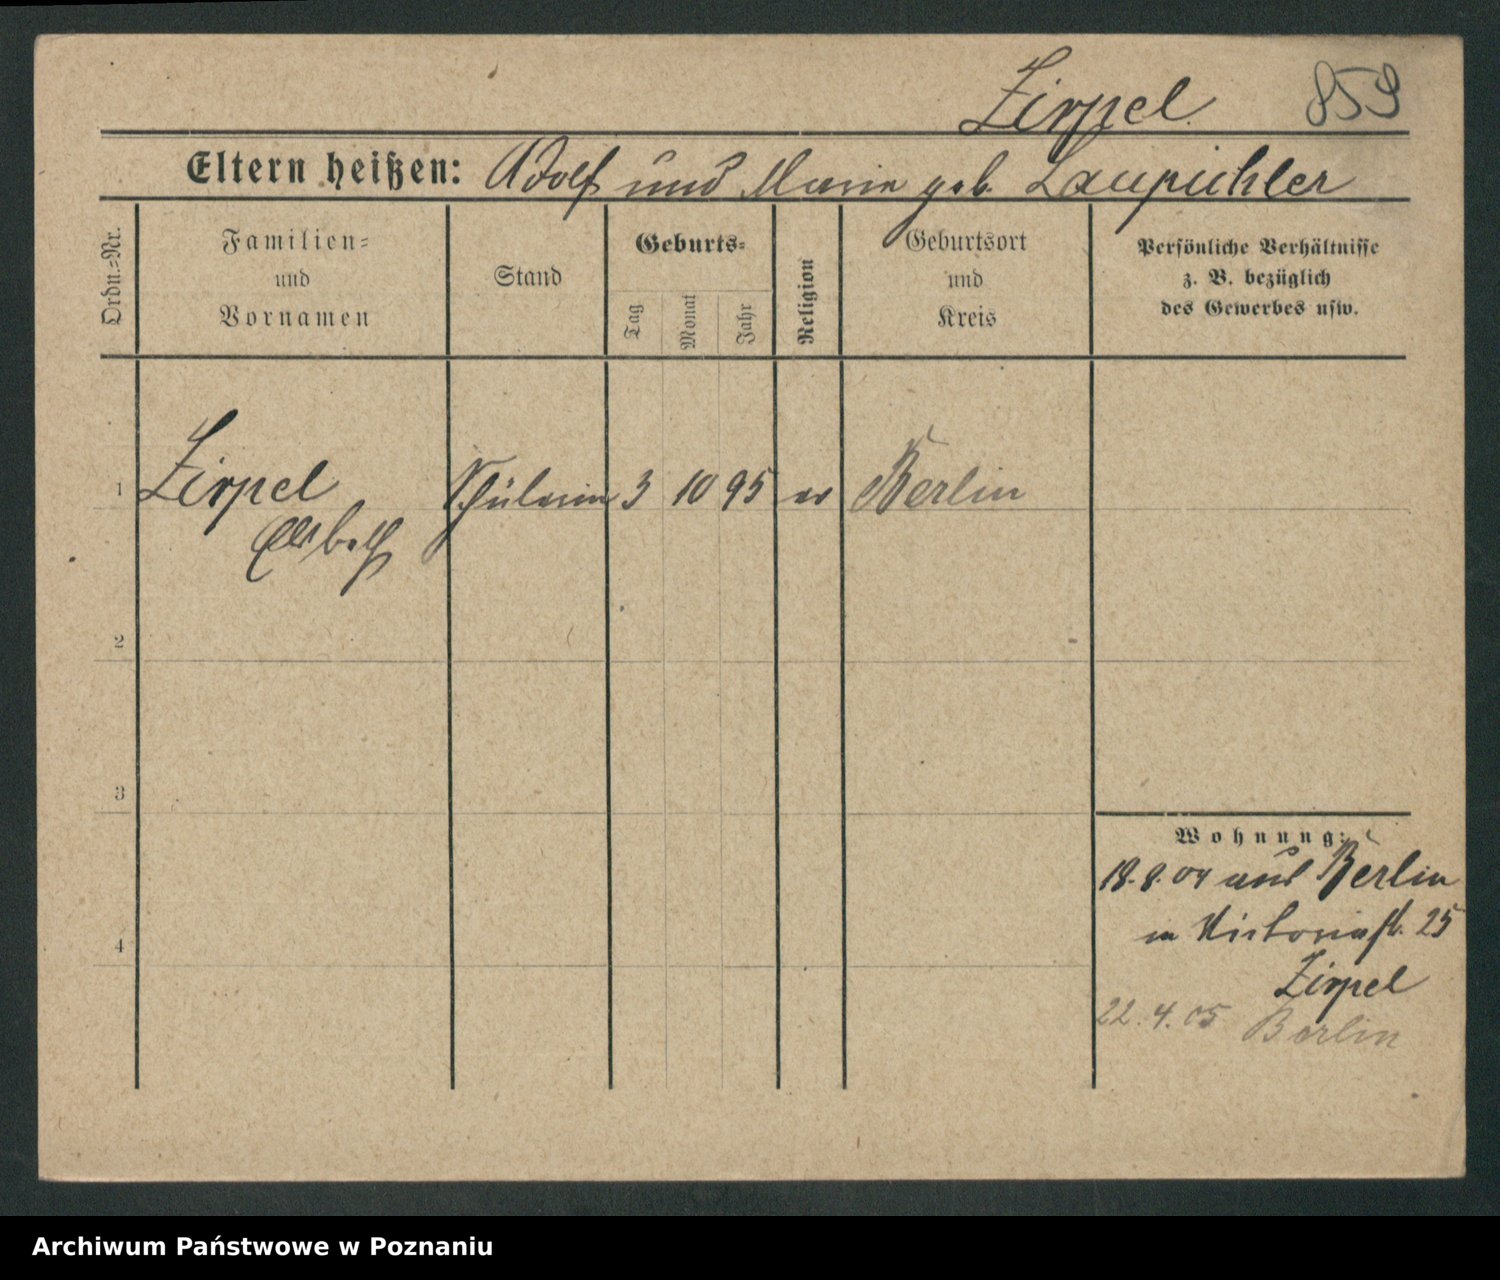 Zirpel. 859
Eltern heißen: Adolf und Marie geb. Laupichler
Ordn.-Nr.
Familien-
und
Vornamen
Stand
Geburts-
Tag
Monat
Jahr
Religion
Geburtsort
und
Kreis
Persönliche Verhältnisse
z. B. bezüglich
des Gewerbes usw.
1 Zirpel Schülerin 3 10 95 ev Berlin
Elsbeth
2
3
4
Wohnung:
18.8.04 aus Berlin
in Victoriastr. 25
Zirpel
22.4.05 Berlin
Archiwum Państwowe w Poznaniu